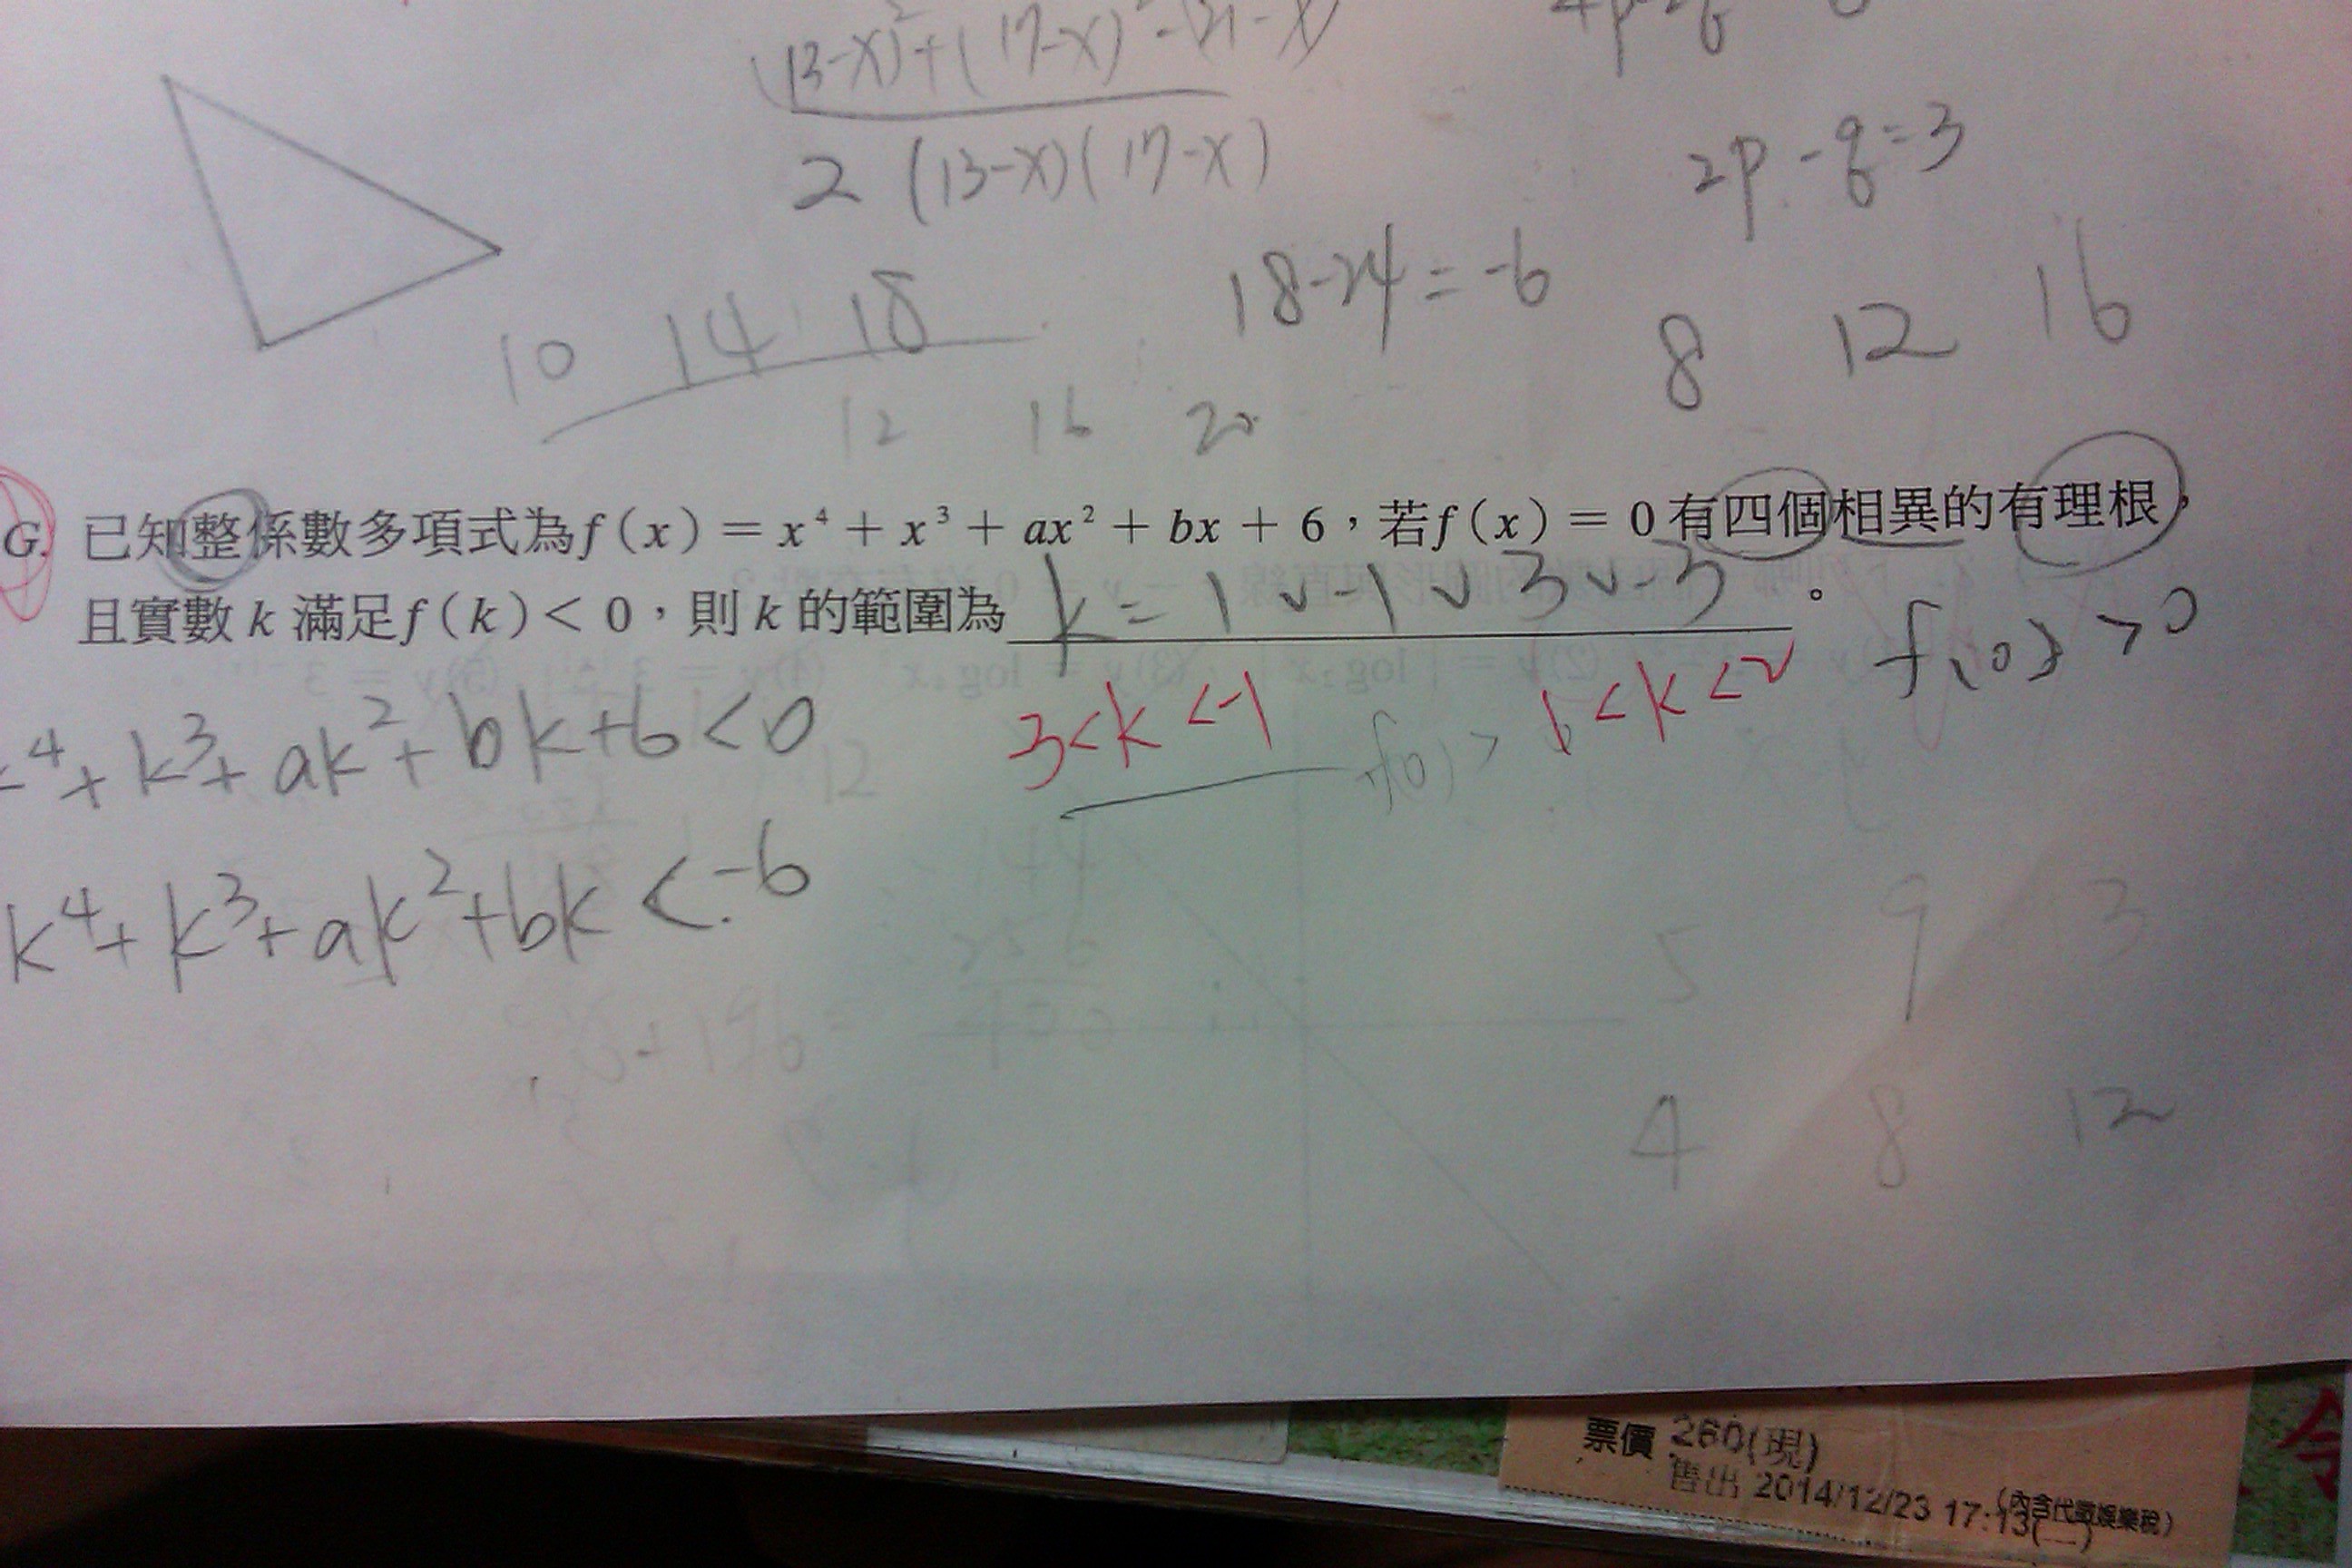 (13-x)²+(17-x)²-(21-x)
2 (13-x)(17-x)
2p-q=3
18-24=-6
10 14 18
8 12 16
12 16 20
G. 已知整係數多項式為f(x) = x⁴ + x³ + ax² + bx + 6，若f(x) = 0有四個相異的有理根，
且實數 k 滿足f(k) < 0，則 k 的範圍為 k = 1 ∨ -1 ∨ 3 ∨ -3 。
f(0) > 0
3<k<-1 f(0) > 1<k<2
⁴+k³+ak²+bk+6<0
k⁴+k³+ak²+bk<-6
5 9 3
4 8 12
票價 260(現)
售出 2014/12/23 17:13
(內含代徵娛樂稅)
令